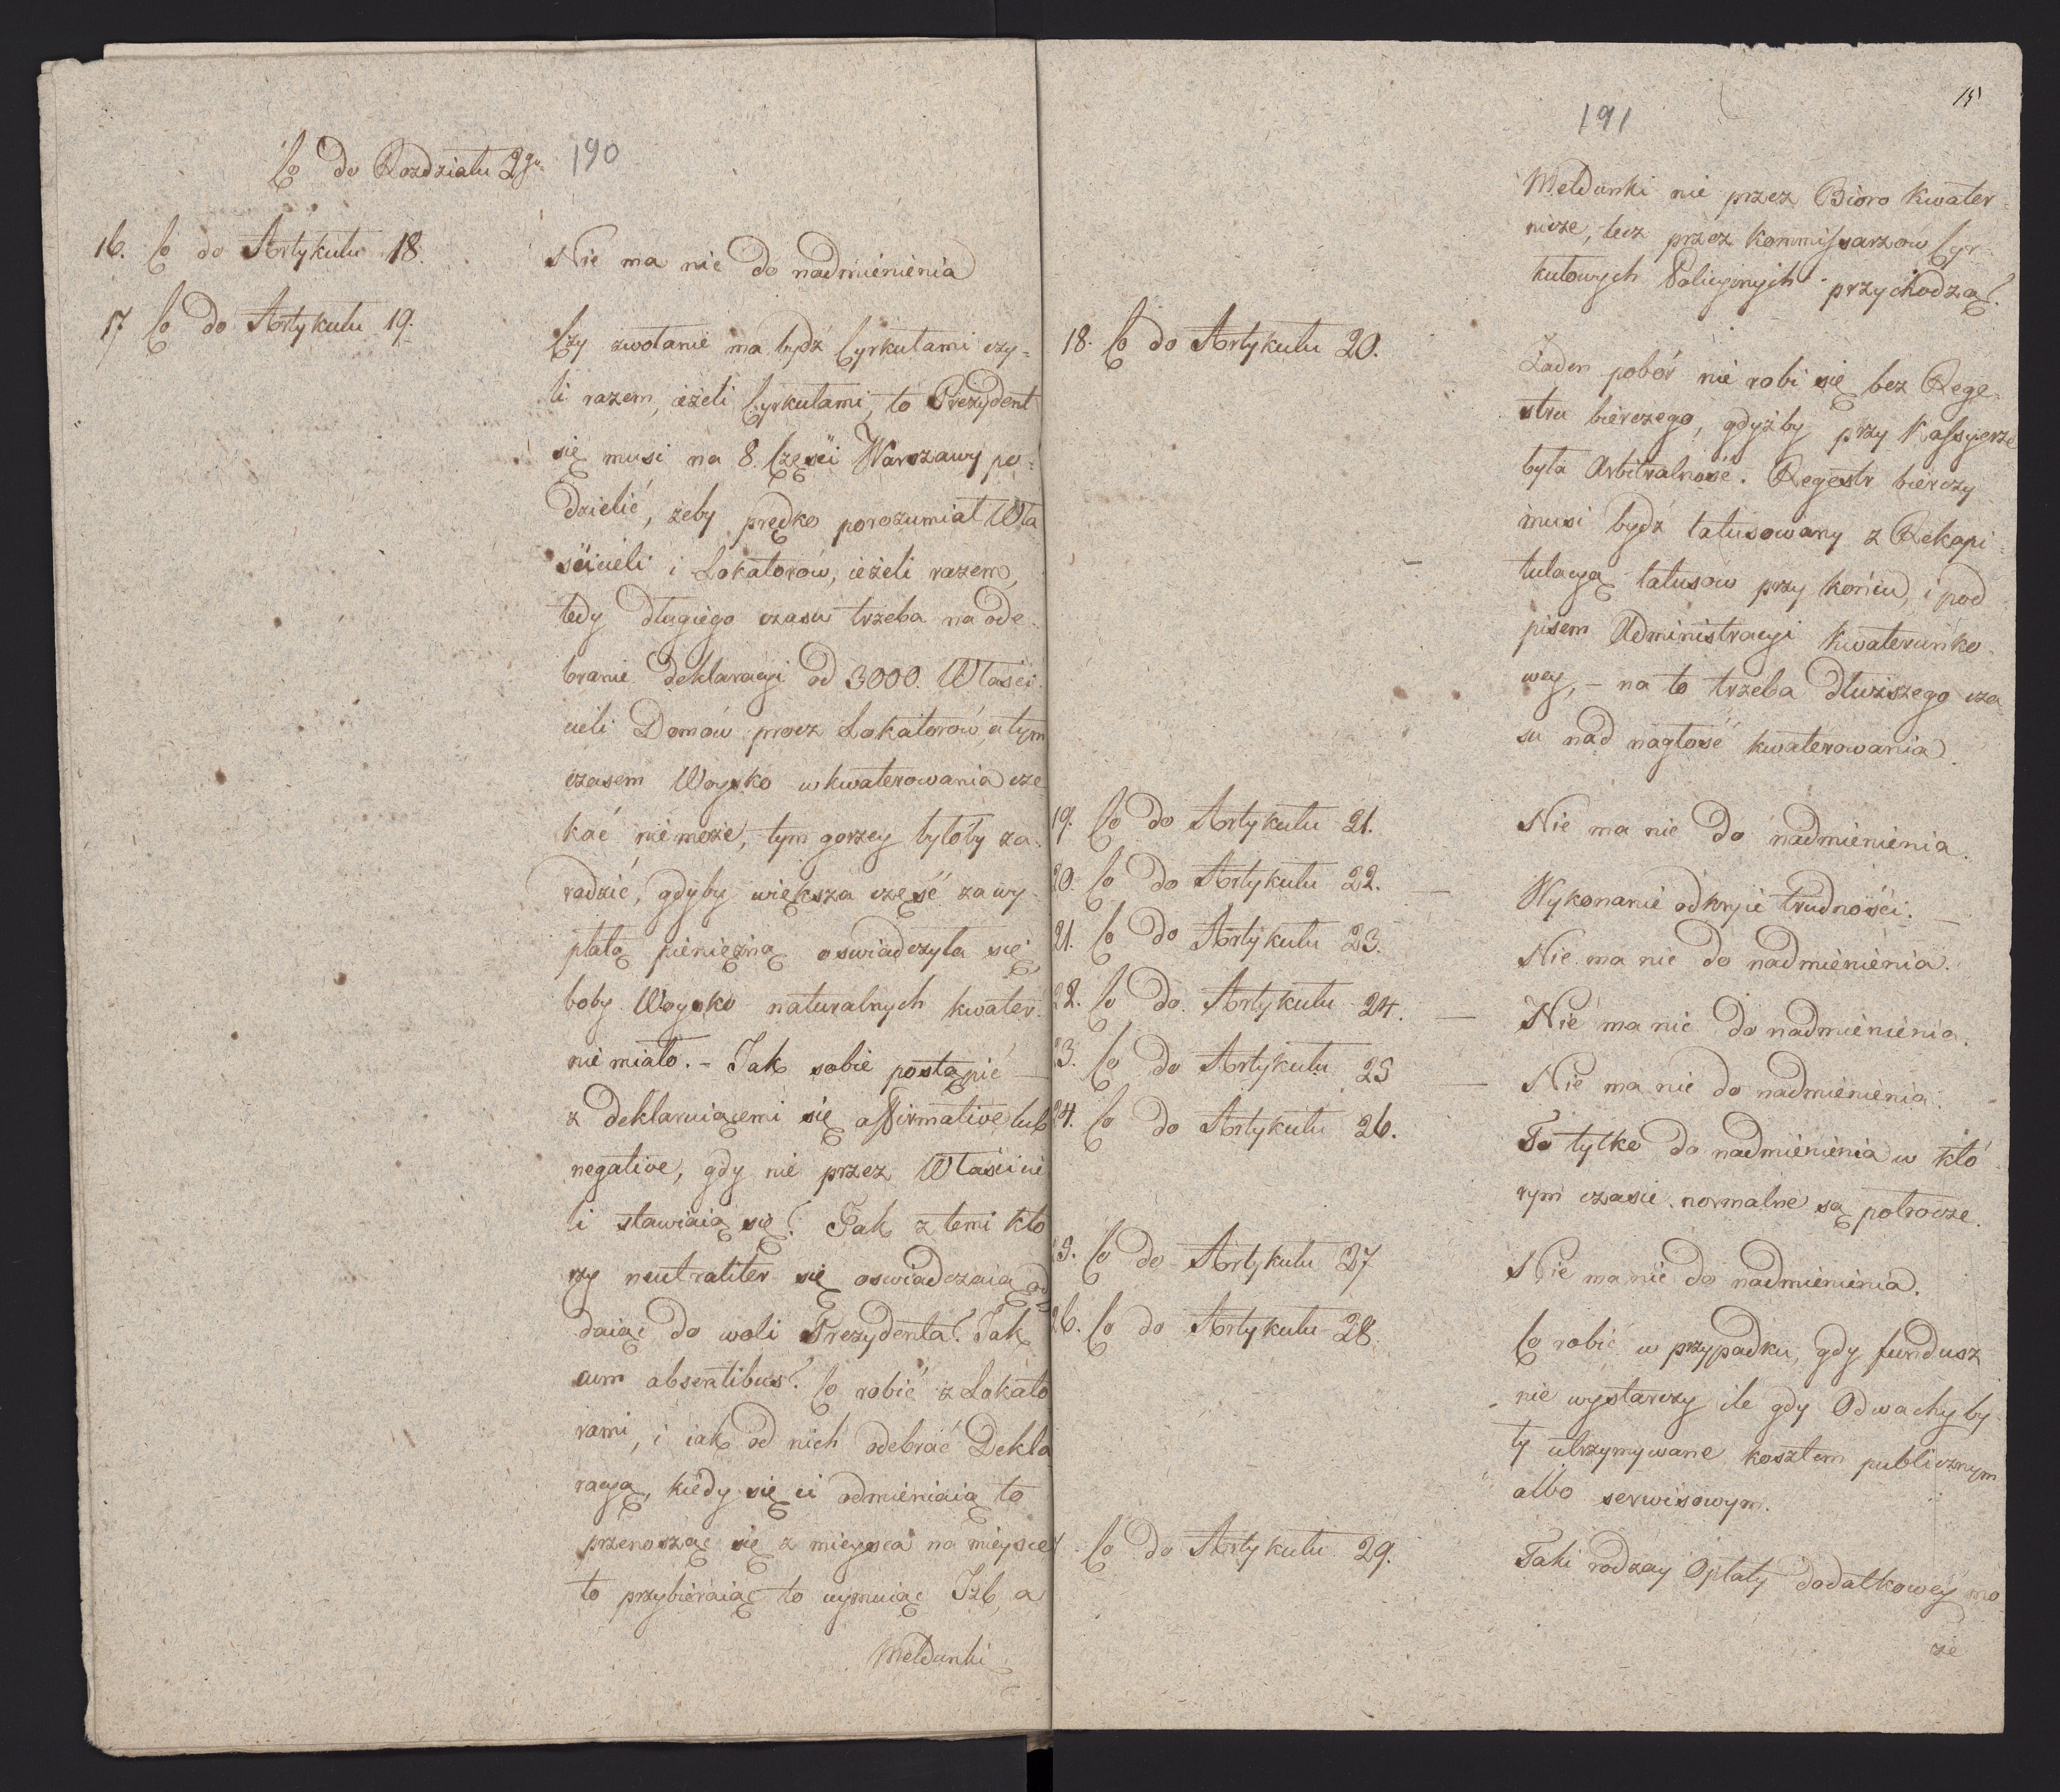 190
Co do Rozdziału 2go
16. Co do Artykułu 18.
Nie ma nic do nadmienienia
17 Co do Artykułu 19.
Czy zwołanie ma bydź Cyrkułami czy-
li razem, ieżeli Cyrkułami, to Prezydent
się musi na 8. Części Warszawy po-
dzielić, żeby prędko porozumiał Wła
ścicieli i Lokatorów, ieżeli razem,
tedy długiego czasu trzeba na ode-
branie deklaracyi od 3000. Właści
cieli Domów procz Lokatorów, a tym
czasem Woysko wkwaterowania cze-
kać nie może, tym gorzey byłoby za-
radzić, gdyby większa część za wy-
płatą pieniężną oswiadczyła się,
boby Woysko naturalnych kwater
nie miało. – Jak sobie postąpić —
z deklaruiącemi się affirmative lub
negative, gdy nie przez Właścicie
li stawiaią się? Jak z temi któ
rzy neutraliter się oswiadczaią od-
daiąc do woli Prezydenta? Jak
cum absentibus? Co robić z Lokato
rami, i iak od nich odebrać Dekla
racyą, kiedy się ci odmieniaią to
przenosząc się z mieysca na mieysce
to przybieraiąc to uymuiąc Izb, a
Meldunki
15
191
Meldunki nie przez Bióro kwater-
nicze, lecz przez Kommissarzow Cyr-
kułowych Policyinych przychodzą?
18. Co do Artykułu 20.
Żaden pobór nie robi się bez Rege-
stru bierczego, gdyżby przy Kassyerze
była Arbitralność. Regestr bierczy
musi bydź latusowany z Rekapi-
tulacyą latusow przy końcu, i pod
pisem Administracyi kwaterunko-
wey, – na to trzeba dłuższego cza-
su nad nagłość kwaterowania.
19. Co do Artykułu 21.
Nie ma nic do nadmienienia.
20. Co do Artykułu 22. —
Wykonanie odkryie trudności. —
21. Co do Artykułu 23.
Nie ma nic do nadmienienia.
22. Co do Artykułu 24. —
Nie ma nic do nadmienienia.
23. Co do Artykułu 25 —
Nie ma nic do nadmienienia.
24. Co do Artykułu 26.
To tylko do nadmienienia w któ
rym czasie normalne są połrocze.
25. Co do Artykułu 27
Nie ma nic do nadmienienia.
26. Co do Artykułu 28.
Co robić w przypadku, gdy fundusz
nie wystarczy ile gdy Odwachy by-
ły utrzymywane kosztem publicznym
albo serwisowym.
Co do Artykułu 29.
Taki rodzay Opłaty dodatkowey mo
że